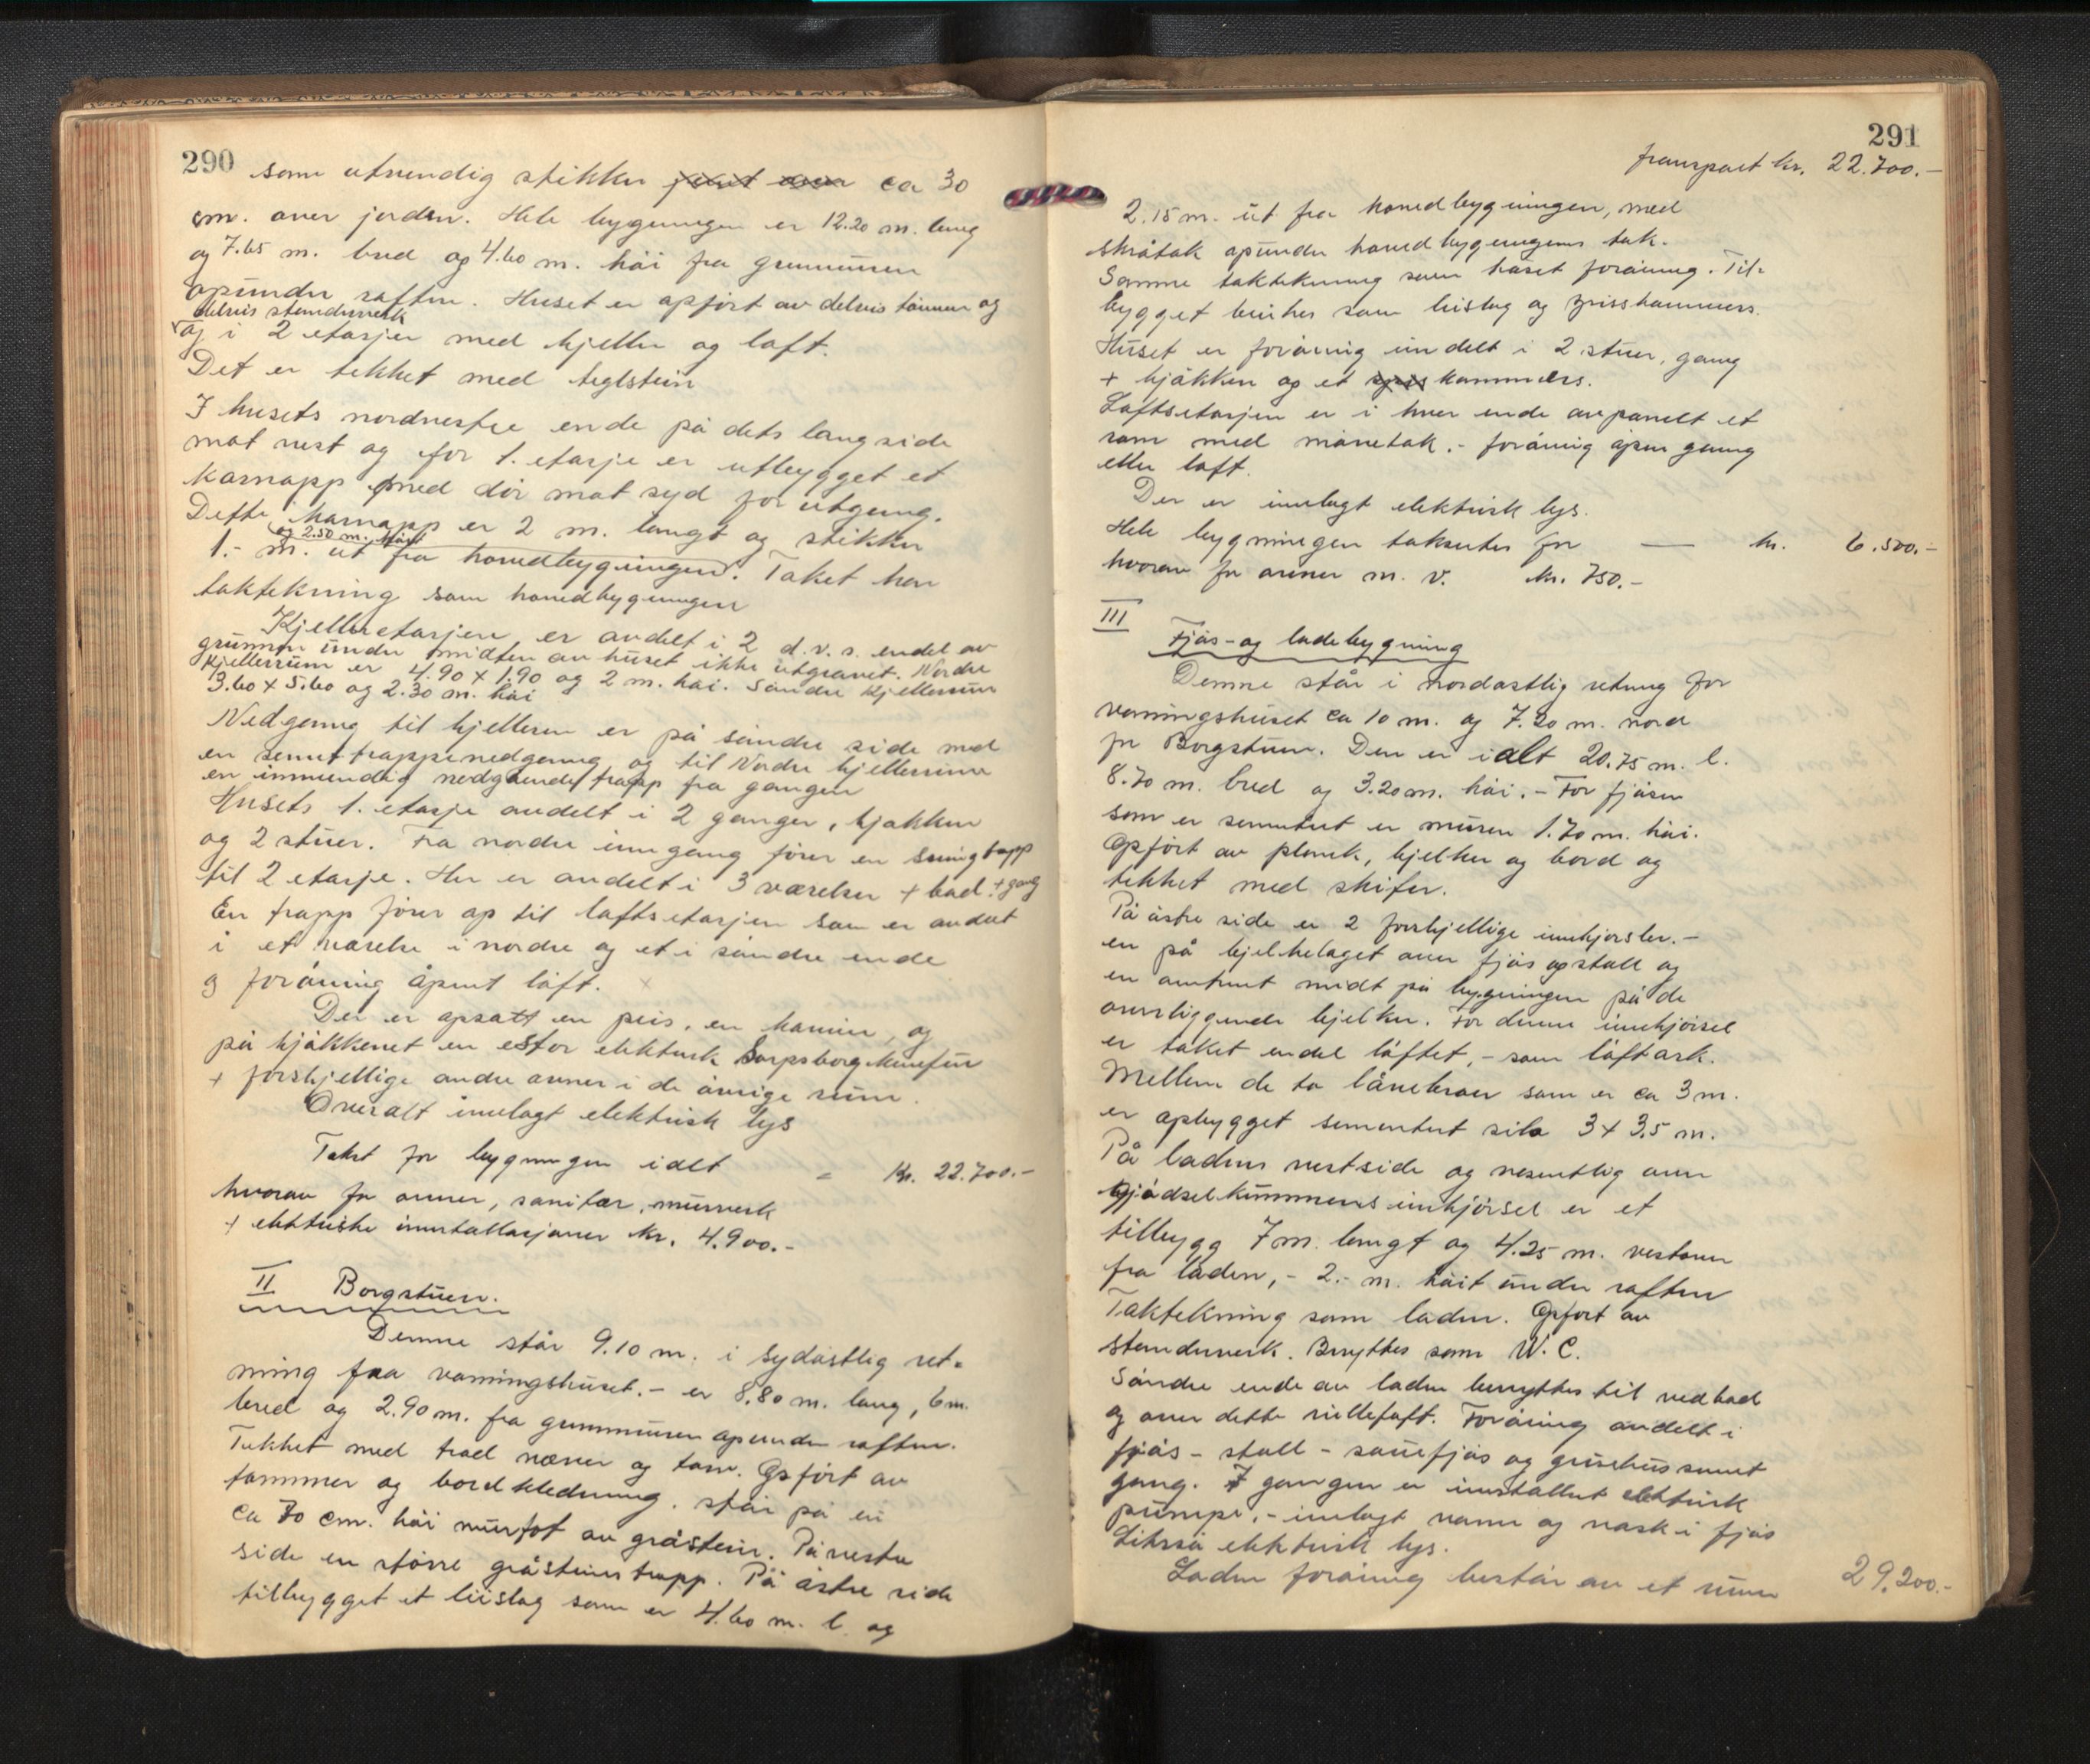 290
som utvendig stikker jevnt over ca 30
cm. over jorden. Hele bygningen er 12.20 m. lang
og 7.65 m. bred og 4.60 m. høi fra grunmuren
opunder raften. Huset er opført av delvis tømmer og
delvis stenderverk
og i 2 etasjer med kjeller og loft.
Det er tekket med teglstein
I husets nordvestre ende på dets langside
mot vest og for 1. etasje er utbygget et
karnapp med dør mot syd for utgang.
Dette karnapp er 2 m. langt og stikker
og 2.50 m. høit
1.- m. ut fra hovedbygningen. Taket har
taktekning som hovedbygningen
Kjelleretasjen er avdelt i 2 d.v.s. endel av
grunnen under midten av huset ikke utgravet. Nordre
kjellerrum er 4.90 x 1.90 og 2 m. høi. Søndre kjellerrum
3.60 x 5.60 og 2.30 m. høi
Nedgang til kjelleren er på søndre side med
en sementtrappenedgang og til Nordre kjellerrum
en innvendig nedgående trapp fra gangen
Husets 1. etasje avdelt i 2 ganger, kjøkken
og 2 stuer. Fra nordre inngang fører en svingtrapp
til 2 etasje. Her er avdelt i 3 værelser + bad + gang
En trapp fører op til loftsetasjen som er avdelt
i et værelse i nordre og et i søndre ende
og forøvrig åpent loft.
Der er opsatt en peis, en kamin, og
på kjøkkenet en stor elektrisk Sarpsborg
+ forskjellige andre ovner i de øvrige rum.
Overalt innlagt elektrisk lys
Takst for bygningen ialt = Kr. 22.700.-
hvorav for ovner, sanitær, murverk
+ elektriske installasjoner kr. 4.900.-
II Borgstuen.
Denne står 9.10 m. i sydøstlig ret-
ning fra våningshuset. - er 8,80 m. lang, 6 m.
bred og 2.90 m. fra grunmuren opunder raften.
Tekket med træd næver og torv. Opført av
tømmer og bordkledning. står på en
ca 70 cm. høi murfot av gråstein. På vestre
side en større gråsteins trapp. På østre side
tilbygget et bislag som er 4.60 m. l. og
291
transport kr. 22.700.-
2.15 m. ut fra hovedbygningen, med
skråtak opunder hovedbygningens tak.
Samme taktekning som huset forøvrig. Til-
bygget benyttes som bislag og spisskammers.
Huset er forøvrig inndelt i 2 stuer, gang
+ kjøkken og et spis kammers.
Loftsetasjen er i hver ende avpanelt et
rom med månetak. - forøvrig åpen gang
eller loft.
Der er innlagt elektrisk lys.
Hele bygningen takseres for — kr. 6.500.-
hvorav for ovner m. v. kr. 750.-
III
Fjøs- og ladebygning
Denne står i nordøstlig retning for
våningshuset ca 10 m. og 7.20 m. nord
for Borgstuen. Den er ialt 20.75 m. l.
8.70 m. bred og 3.20 m. høi. - For fjøsen
som er sementert er muren 1.70 m. høi.
Opført av plank, bjelker og bord og
tekket med skifer.
På østre side er 2 forskjellige innkjørsler. -
en på bjelkelaget over fjøs og stall og
en omtrent midt på bygningen på de
overliggende bjelker. For denne innkjørsel
er taket endel løftet, - som løftark.
Mellem de to låvebroer som er ca 3 m.
er opbygget sementert silo 3 x 3.5 m.
På ladens vestside og vesentlig over
gjødselkummens innkjørsel er et
tilbygg 7 m. langt og 4.25 m. vestover
fra laden, - 2.- m. høit under raften
Taktekning som laden. Opført av
stenderverk. Benyttes som W. C.
Søndre ende av laden benyttes til vedbod
og over dette rulleloft. Forøvrig avdelt i
fjøs - stall - sauefjøs og grisehus samt
gang. I gangen er installert elektrisk
pumpe, - innlagt vann og vask i fjøs
Likeså elektrisk lys.
Laden forøvrig består av et rum
29.200.-